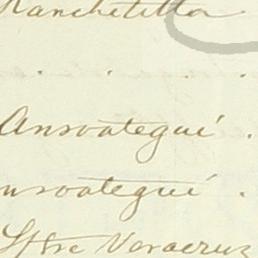 Ranchetilla
Ansoategui .
nsoategui .
Istre Veracruz